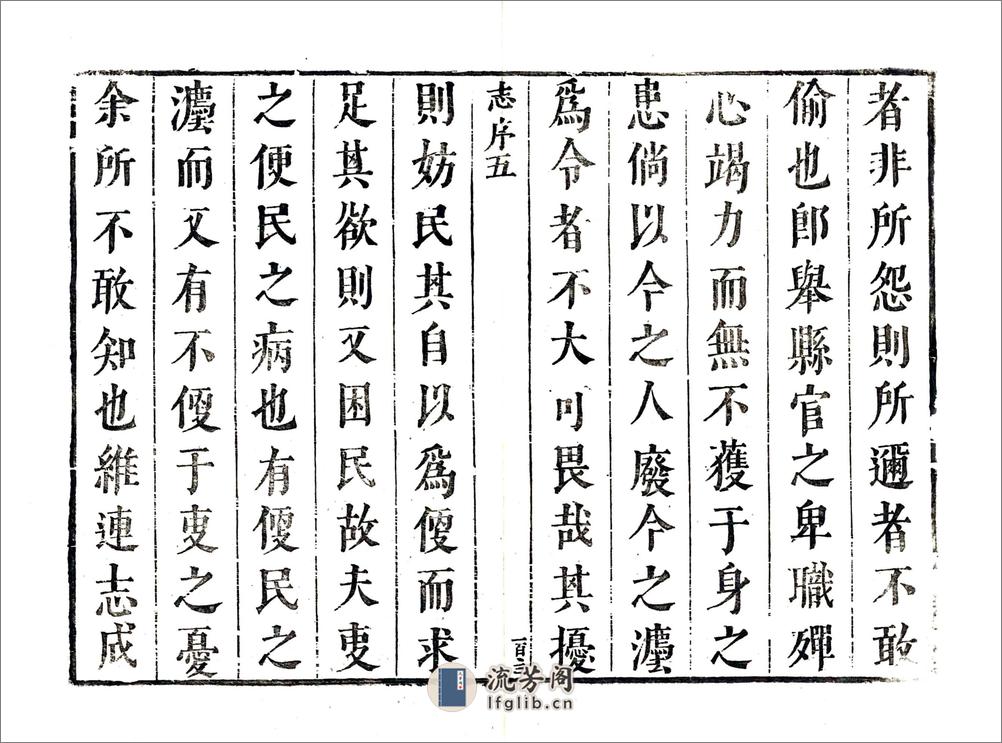 者非所怨則所邇者不敢
偷也卽舉縣官之卑職殫
心竭力而無不獲于身之
患倘以今之人廢今之灋
爲令者不大可畏哉其擾
志序五
則妨民其自以爲便而求
足其欲則又困民故夫吏
之便民之病也有便民之
灋而又有不便于吏之憂
余所不敢知也維連志成
流芳阁
lfglib.cn